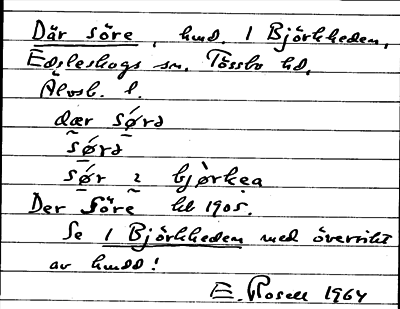 Där söre, hmd. 1 Björkheden,
Edsleskogs sn. Tössbo hd,
Älvsb. l.
dær sø̀rə
sø̀rə
sø̀r 2 bjørkea
Der Söre kb 1905.
Se 1 Björkheden med översikt
av hmdd!
E. Rosell 1964